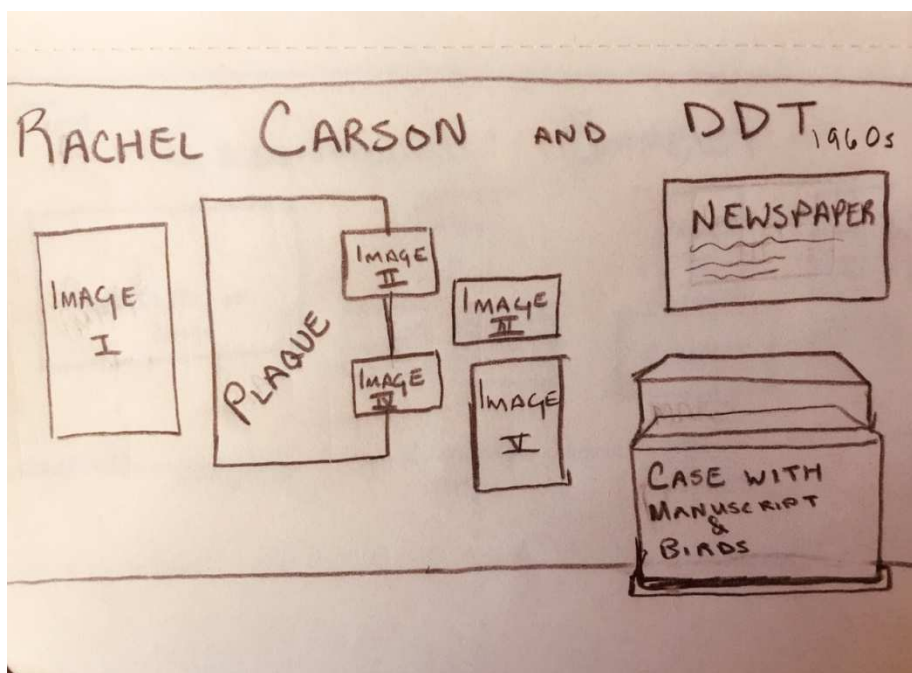 RACHEL CARSON AND DDT 1960s
IMAGE
I
PLAQUE
IMAGE
II
IMAGE
III
IMAGE
IV
IMAGE
V
NEWSPAPER
CASE WITH
MANUSCRIPT
&
BIRDS